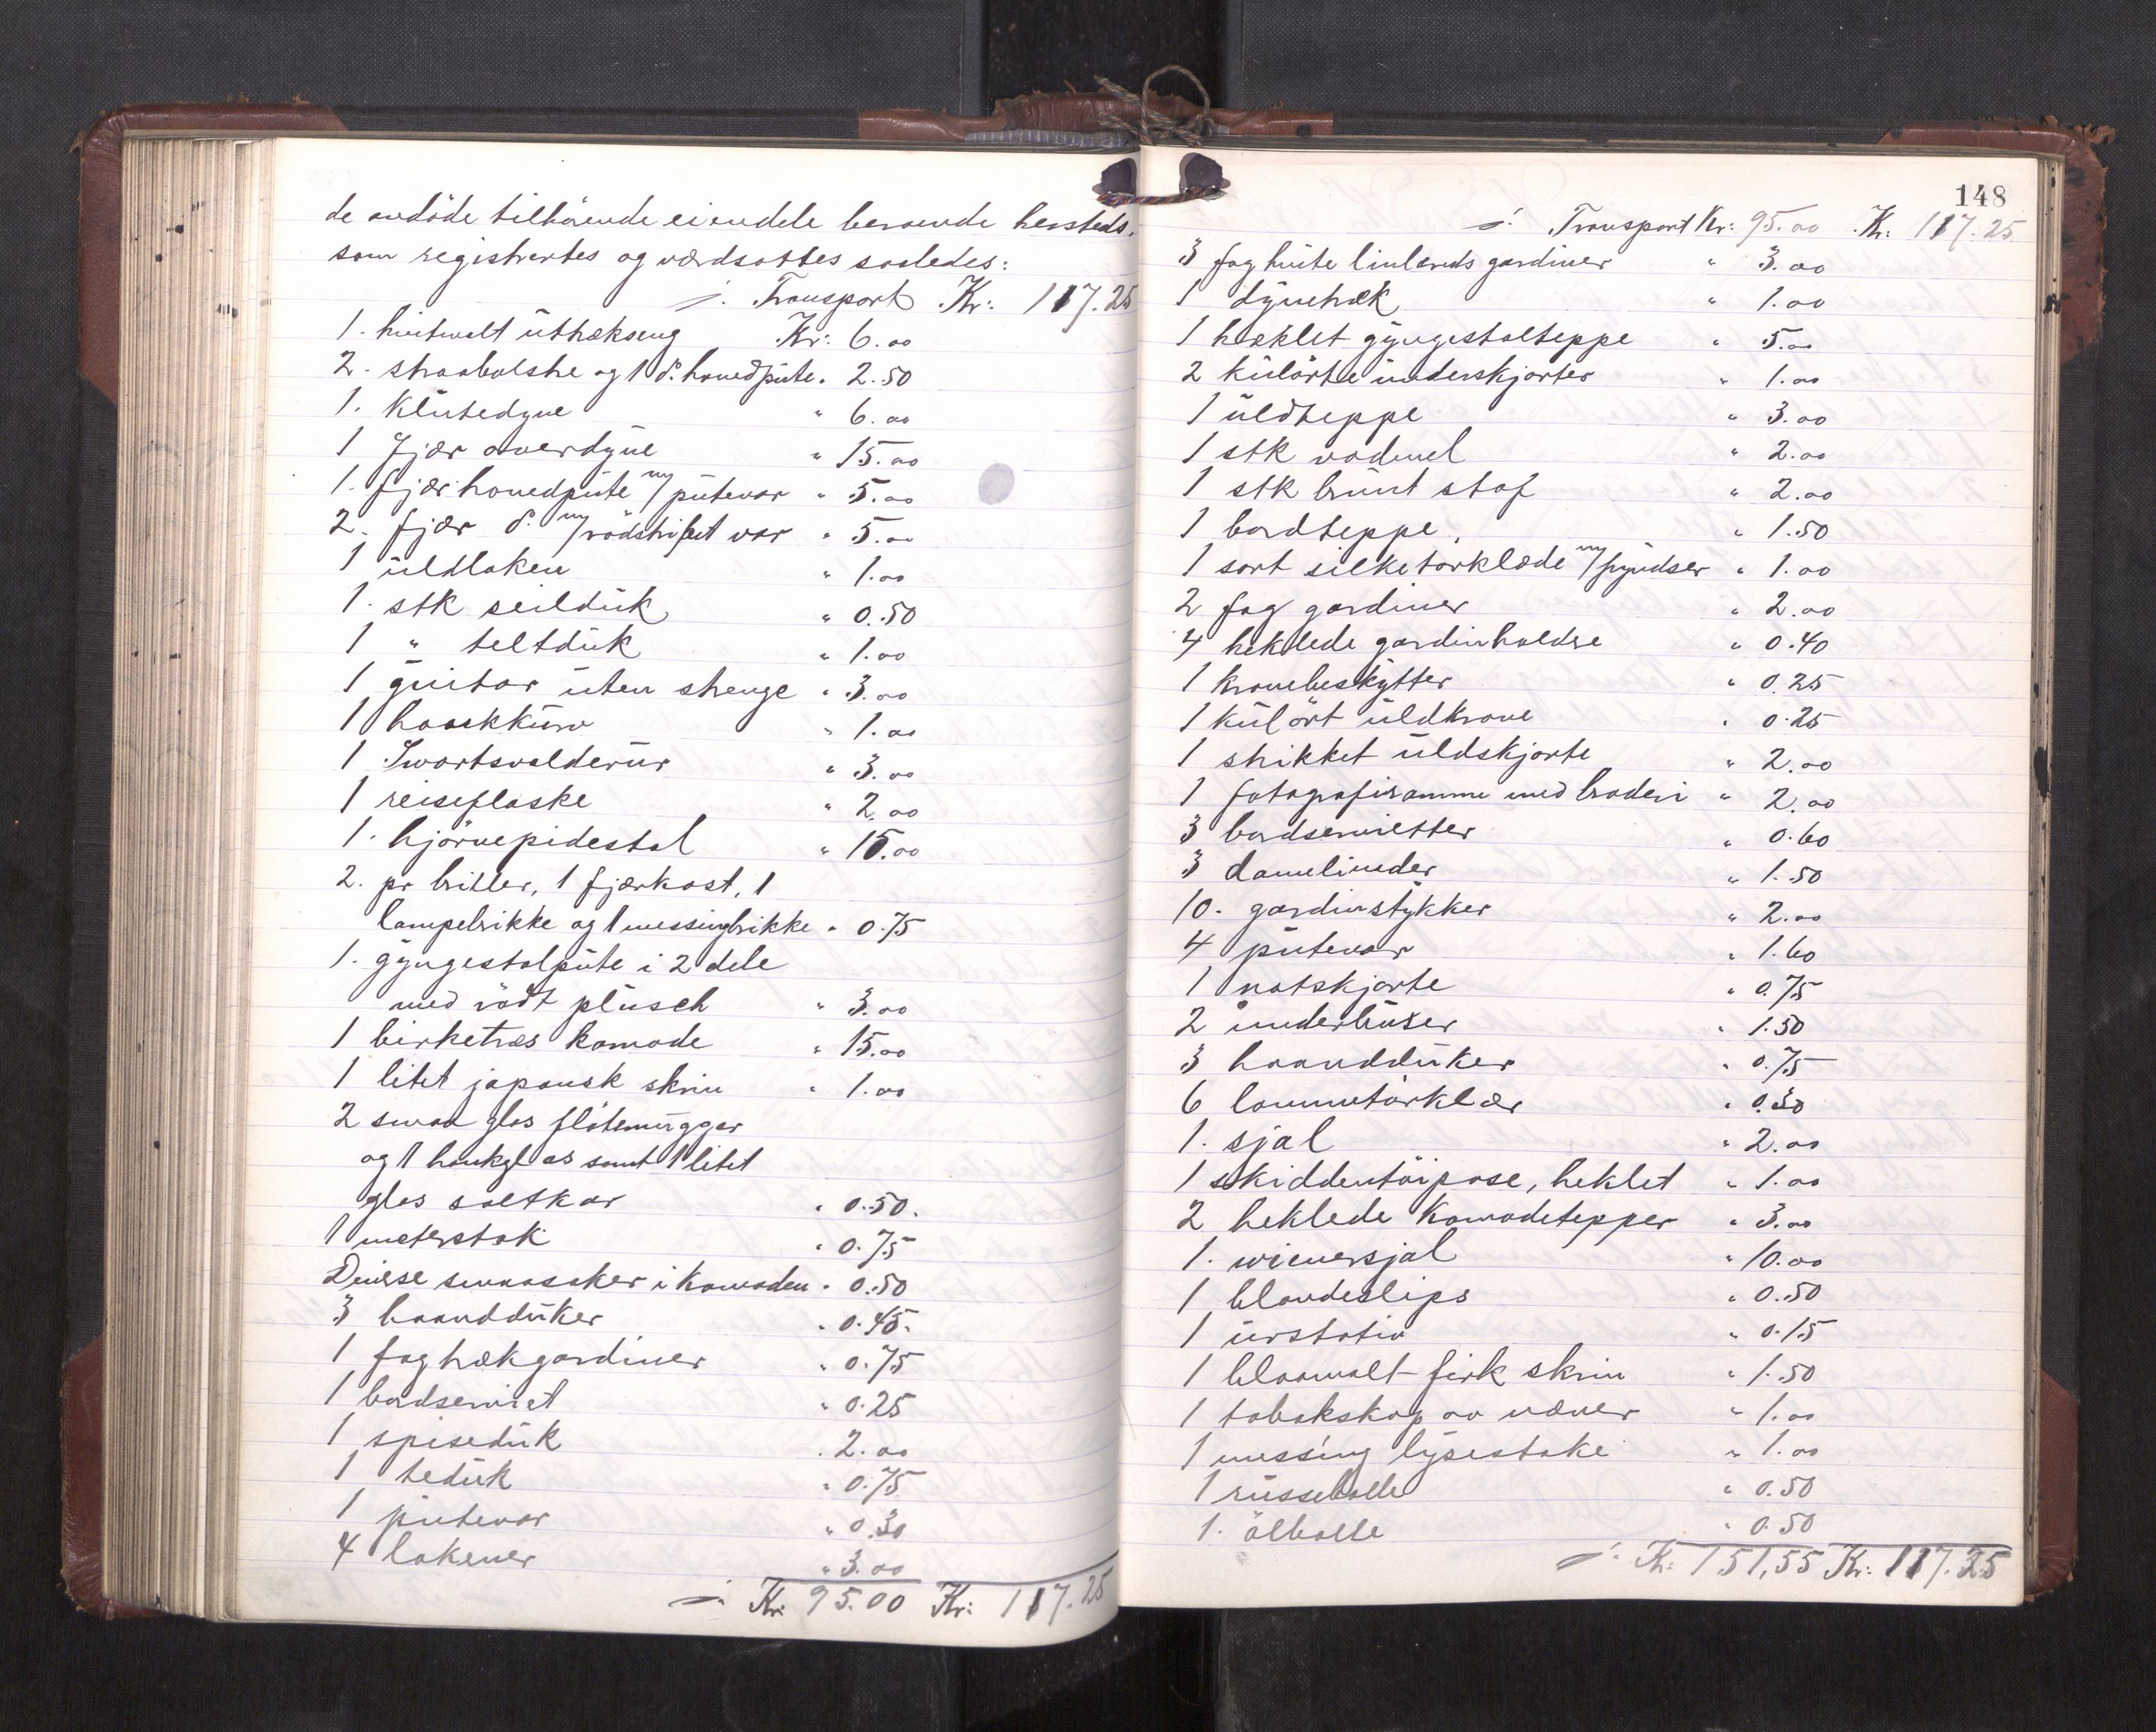 de avdöde tilhörende eiendele beroende hersteds,
som registrertes og værdsattes saaledes:
./. Transport Kr: 117.25
1. hvitmalt uttrækseng Kr: 6.00
2. straabolstre og 1 do. hovedpute " 2.50
1. Klutedyne " 6.00
1 Fjær overdyne " 15.00
1. fjær hovedpute m/ putevar " 5.00
2. fjær do. m/ rödstripet var " 5.00
1 uldlaken " 1.00
1. stk seilduk " 0.50
1 " teltduk " 1.00
1 guitar uten strenge " 3.00
1 haandkurv " 1.00
1 Svartsvalderur " 3.00
1 reiseflaske " 2.00
1. hjörnepidestal " 15.00
2. pr briller, 1 fjærkost, 1
lampebrikke og 1 messingbrikke " 0.75
1. gyngestolpute i 2 dele
med rödt plusch " 3.00
1 birketræs komode " 15.00
1 litet japansk skrin " 1.00
2 smaa glas flötemugger
og 1 hankglas samt 1 litet
glas saltkar " 0.50.
1 meterstok " 0.75
Diverse smaasaker i komoden " 0.50
3 haandduker " 0.45.
1 fag trækgardiner " 0.75
1 bordserviet " 0.25
1 spiseduk " 2.00
1 teduk " 0.75
1 putevar " 0.30
4 lakener " 3.00
./. Kr. 95.00 Kr: 117.25
148
./. Transport Kr: 95.00 Kr: 117.25
3 fag hvite linlærreds gardiner " 3.00
1 dynetræk " 1.00
1 hæklet gyngestolteppe " 5.00
2 kulörte underskjorter " 1.00
1 uldteppe " 3.00
1 stk vadmel " 2.00
1 stk brunt stof " 2.00
1 bordteppe, " 1.50
1 sort silketörklæde m/ fryndser " 1.00
2 fag gardiner " 2.00
4 heklede gardinholdre " 0.40
1 kravebeskytter " 0.25
1 kulört uldkrave " 0.25
1 strikket uldskjorte " 2.00
1 fotografiramme med broderi " 2.00
3 bordservietter " 0.60
3 damelinneder " 1.50
10. gardinstykker " 2.00
4 putevar " 1.60
1 natskjorte " 0.75
2 underbukser " 1.50
3 haandduker " 0.75
6 lommetörklær " 0.30
1. sjal " 2.00
1 skiddentöipose, heklet " 1.00
2 heklede komodetepper " 3.00
1. wienersjal " 10.00
1 blondeslips " 0.50
1 urstativ " 0.15
1 blaamalt firk skrin " 1.50
1 tobakskop av næver " 1.00
1 messing lysestake " 1.00
1 russebolle " 0.50
1. ölbolle " 0.50
./. Kr. 151,55 Kr: 117.25